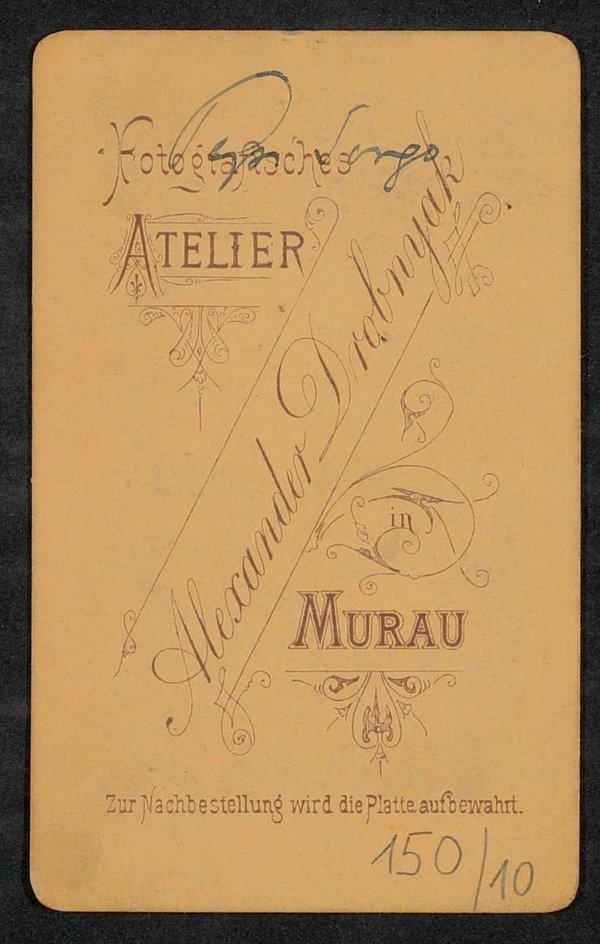 Fotografisches
ATELIER
Alexander Drobnyak
in
MURAU
Zur Nachbestellung wird die Platte aufbewahrt.
150/10